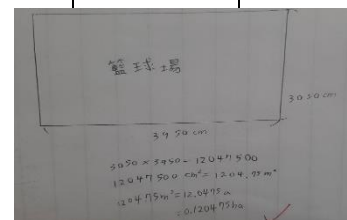 籃球場
3050 cm
3950 cm
3050 × 3950 = 12047500
12047500 cm² = 1204.75 m²
1204.75 m² = 12.0475 a
= 0.120475 ha